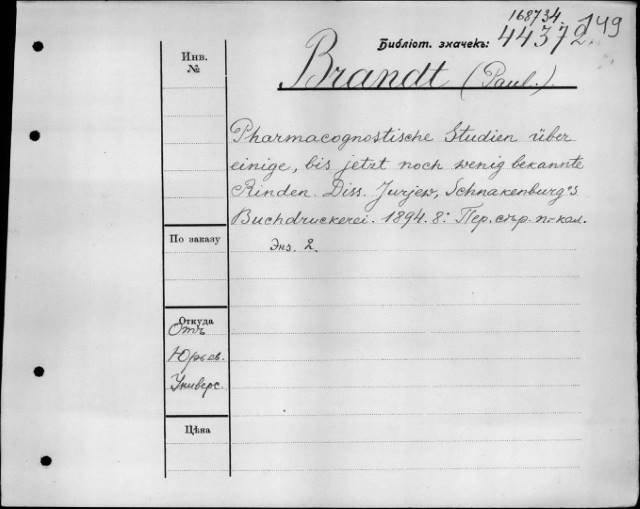 168734.
Библіот. значекъ: 44372. 149
Инв.
№
Brandt (Paul.)
Pharmacognostische Studien über
einige, bis jetzt noch wenig bekannte
Rinden. Diss. Jurjew, Schnakenburg's
Buchdruckerei. 1894. 8º Пер. стр. п. кол.
Экз. 2.
По заказу
Откуда
Отъ
Юрьев.
Универс.
Цѣна